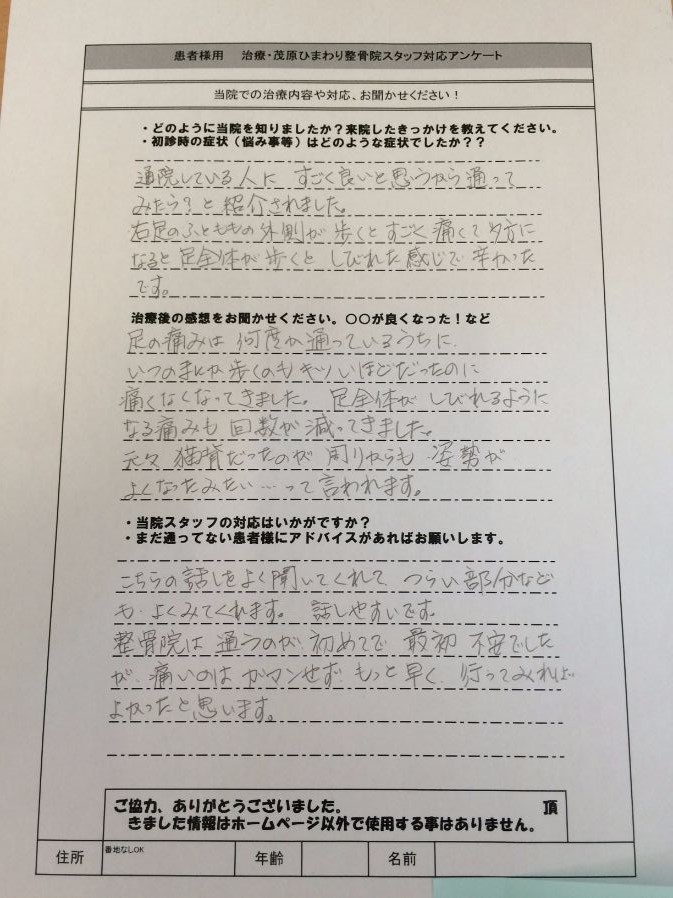 患者様用　治療・茂原ひまわり整骨院スタッフ対応アンケート
当院での治療内容や対応、お聞かせください！
・どのように当院を知りましたか？来院したきっかけを教えてください。
・初診時の症状（悩み事等）はどのような症状でしたか？？
通院している人に すごく良いと思うから通って
みたら？と紹介されました。
右足のふとももの外側が歩くとすごく痛くて夕方に
なると足全体が歩くと しびれた感じで辛かった
です。
治療後の感想をお聞かせください。○○が良くなった！など
足の痛みは何度か通っているうちに、
いつのまにか歩くのもキツいほどだったのに
痛くなくなってきました。足全体がしびれるように
なる痛みも回数が減ってきました。
元々猫背だったのが周りからも姿勢が
よくなったみたい…って言われます。
・当院スタッフの対応はいかがですか？
・まだ通ってない患者様にアドバイスがあればお願いします。
こちらの話しをよく聞いてくれて、つらい部分など
も、よくみてくれます。話しやすいです。
整骨院は通うのが初めてで 最初 不安でした
が、痛いのはガマンせず、もっと早く、行ってみれば
よかったと思います。
ご協力、ありがとうございました。　頂
きました情報はホームページ以外で使用する事はありません。
住所　番地なしOK　年齢　名前